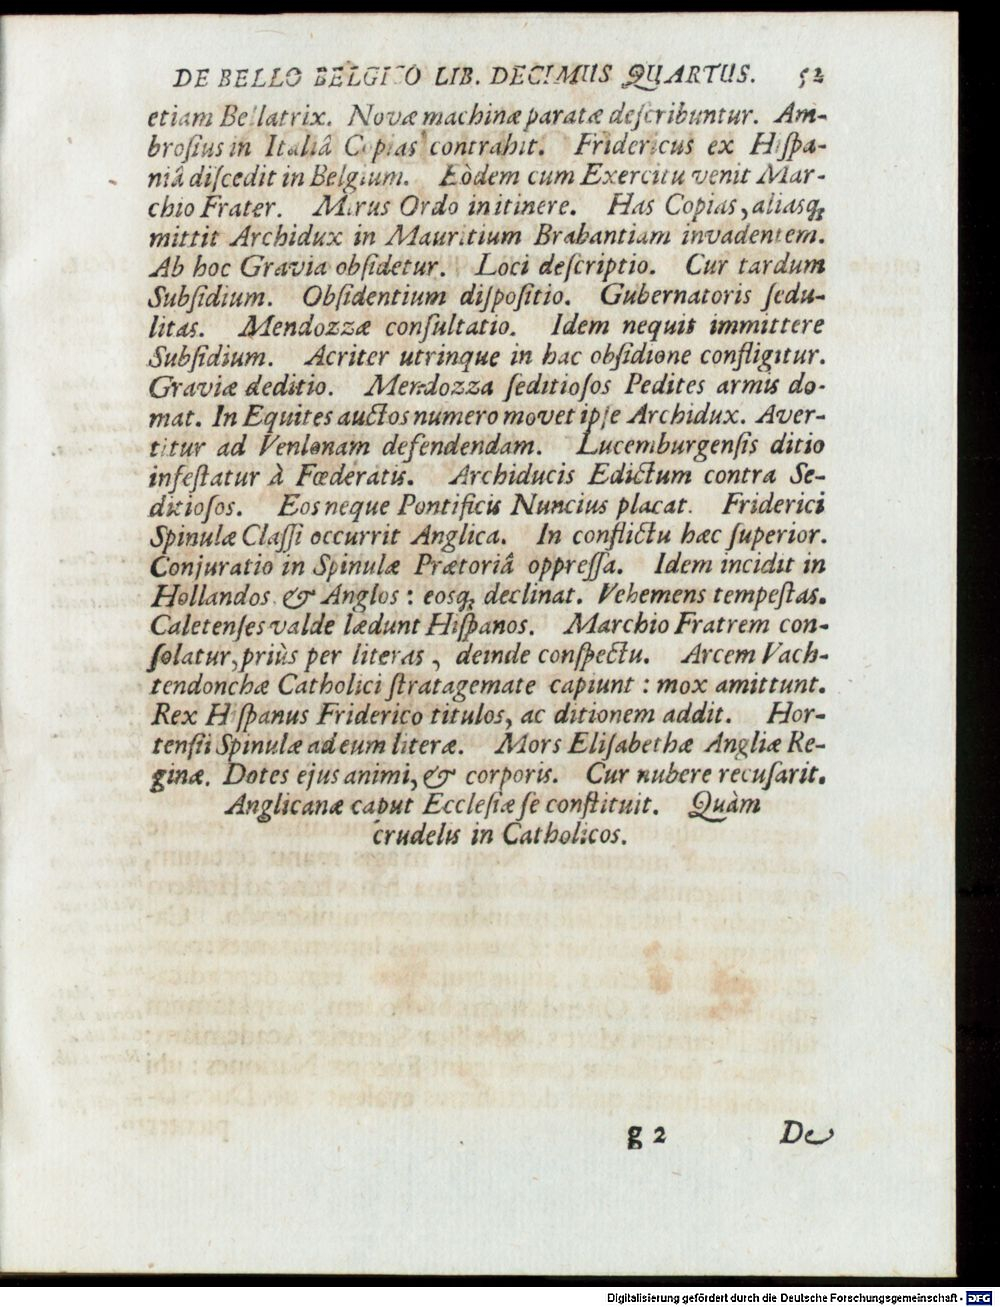 DE BELLO BELGICO LIB. DECIMUS QUARTUS. 52
etiam Bellatrix. Novæ machinæ paratæ deſcribuntur. Am-
broſius in Italiâ Copias contrahit. Fridericus ex Hiſpa-
niâ diſcedit in Belgium. Eòdem cum Exercitu venit Mar-
chio Frater. Mirus Ordo in itinere. Has Copias, aliasq;
mittit Archidux in Mauritium Brabantiam invadentem.
Ab hoc Gravia obſidetur. Loci deſcriptio. Cur tardum
Subſidium. Obſidentium diſpoſitio. Gubernatoris ſedu-
litas. Mendozzæ conſultatio. Idem nequit immittere
Subſidium. Acriter utrinque in hac obſidione confligitur.
Graviæ deditio. Mendozza ſeditioſos Pedites armis do-
mat. In Equites auctos numero movet ipſe Archidux. Aver-
titur ad Venlonam defendendam. Lucemburgenſis ditio
infeſtatur à Fœderatis. Archiducis Edictum contra Se-
ditioſos. Eos neque Pontificis Nuncius placat. Friderici
Spinulæ Claſſi occurrit Anglica. In conflictu hæc ſuperior.
Conjuratio in Spinulæ Prætoriâ oppreſſa. Idem incidit in
Hollandos & Anglos: eosq; declinat. Vehemens tempeſtas.
Caletenſes valde lædunt Hiſpanos. Marchio Fratrem con-
ſolatur, priùs per literas, deinde conſpectu. Arcem Vach-
tendonchæ Catholici ſtratagemate capiunt: mox amittunt.
Rex Hiſpanus Friderico titulos, ac ditionem addit. Hor-
tenſii Spinulæ ad eum literæ. Mors Eliſabethæ Angliæ Re-
ginæ. Dotes ejus animi, & corporis. Cur nubere recuſarit.
Anglicanæ caput Eccleſiæ ſe conſtituit. Quàm
crudelis in Catholicos.
g 2 De
Digitalisierung gefördert durch die Deutsche Forschungsgemeinschaft - DFG